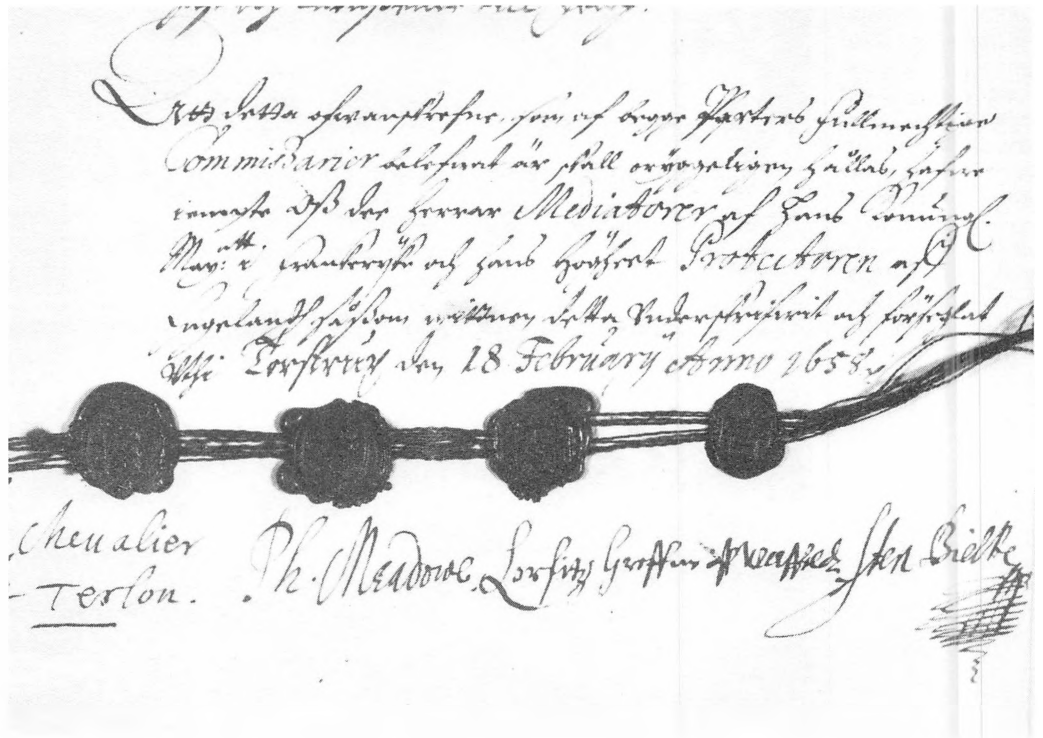 Att detta ofwanskrefne, som af begge Parters fullmechtige
Commissarier belefwat är skall oryggeligen hållas, hafwe
iempte Oß dee herrar Mediatorer af Hans Konungl.
May:ett i Franckeryke och hans Högheet Protectoren aff
Engelandh såßom wittnen detta Underskrifwit och förseglat
Torstrup den 18 February Anno 1658.
Chevalier Ph. Meadowe. Sten Bielke
Terlon.